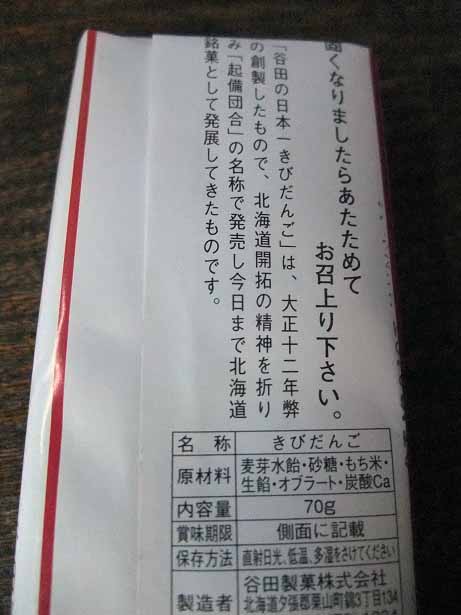 固くなりましたらあたためて
お召上り下さい。
「谷田の日本一きびだんご」は、大正十二年弊
の創製したもので、北海道開拓の精神を折り
み「起備団合」の名称で発売し今日まで北海道
銘菓として発展してきたものです。
名称 きびだんご
原材料 麦芽水飴・砂糖・もち米・
生餡・オブラート・炭酸Ca
内容量 70g
賞味期限 側面に記載
保存方法 直射日光、低温、多湿をさけてください
製造者 谷田製菓株式会社
北海道夕張郡栗山町錦3丁目134